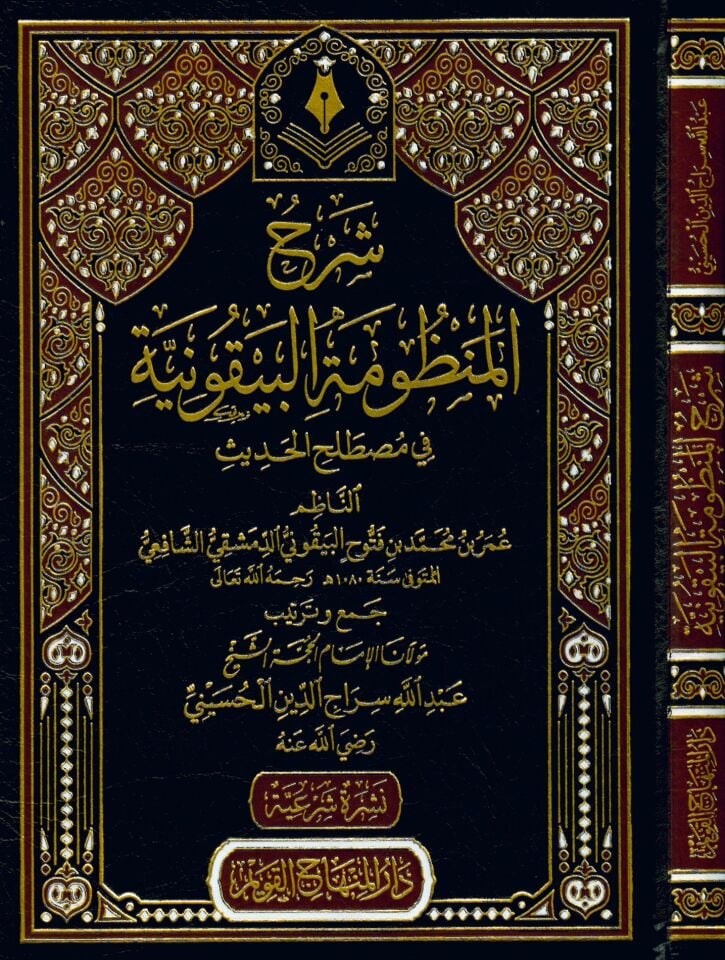 شَرْحُ
المَنْظُومَةِ البَيْقُونِيَّةِ
فِي مُصْطَلَحِ الحَدِيثِ
النَّاظِم
عُمَرُ بْنُ مُحَمَّدِ بْنِ فَتُّوحٍ البَيْقُونِيُّ الدِّمَشْقِيُّ الشَّافِعِيُّ
المتوفى سَنَة ١٠٨٠هـ رَحِمَهُ اللهُ تَعَالَى
جَمْع وَتَرْتِيب
مَوْلَانَا الإِمَامِ الحُجَّةِ الشَّيْخِ
عَبْدِ اللهِ سِرَاجِ الدِّينِ الْحُسَيْنِيِّ
رَضِيَ اللهُ عَنْهُ
نَشْرَةٌ شَرْعِيَّةٌ
دَارُ المِنْهَاجِ القَوِيمِ
عَبْدُ اللهِ سِرَاجُ الدِّينِ الْحُسَيْنِيُّ
شَرْحُ المَنْظُومَةِ البَيْقُونِيَّةِ
دَارُ المِنْهَاجِ القَوِيمِ